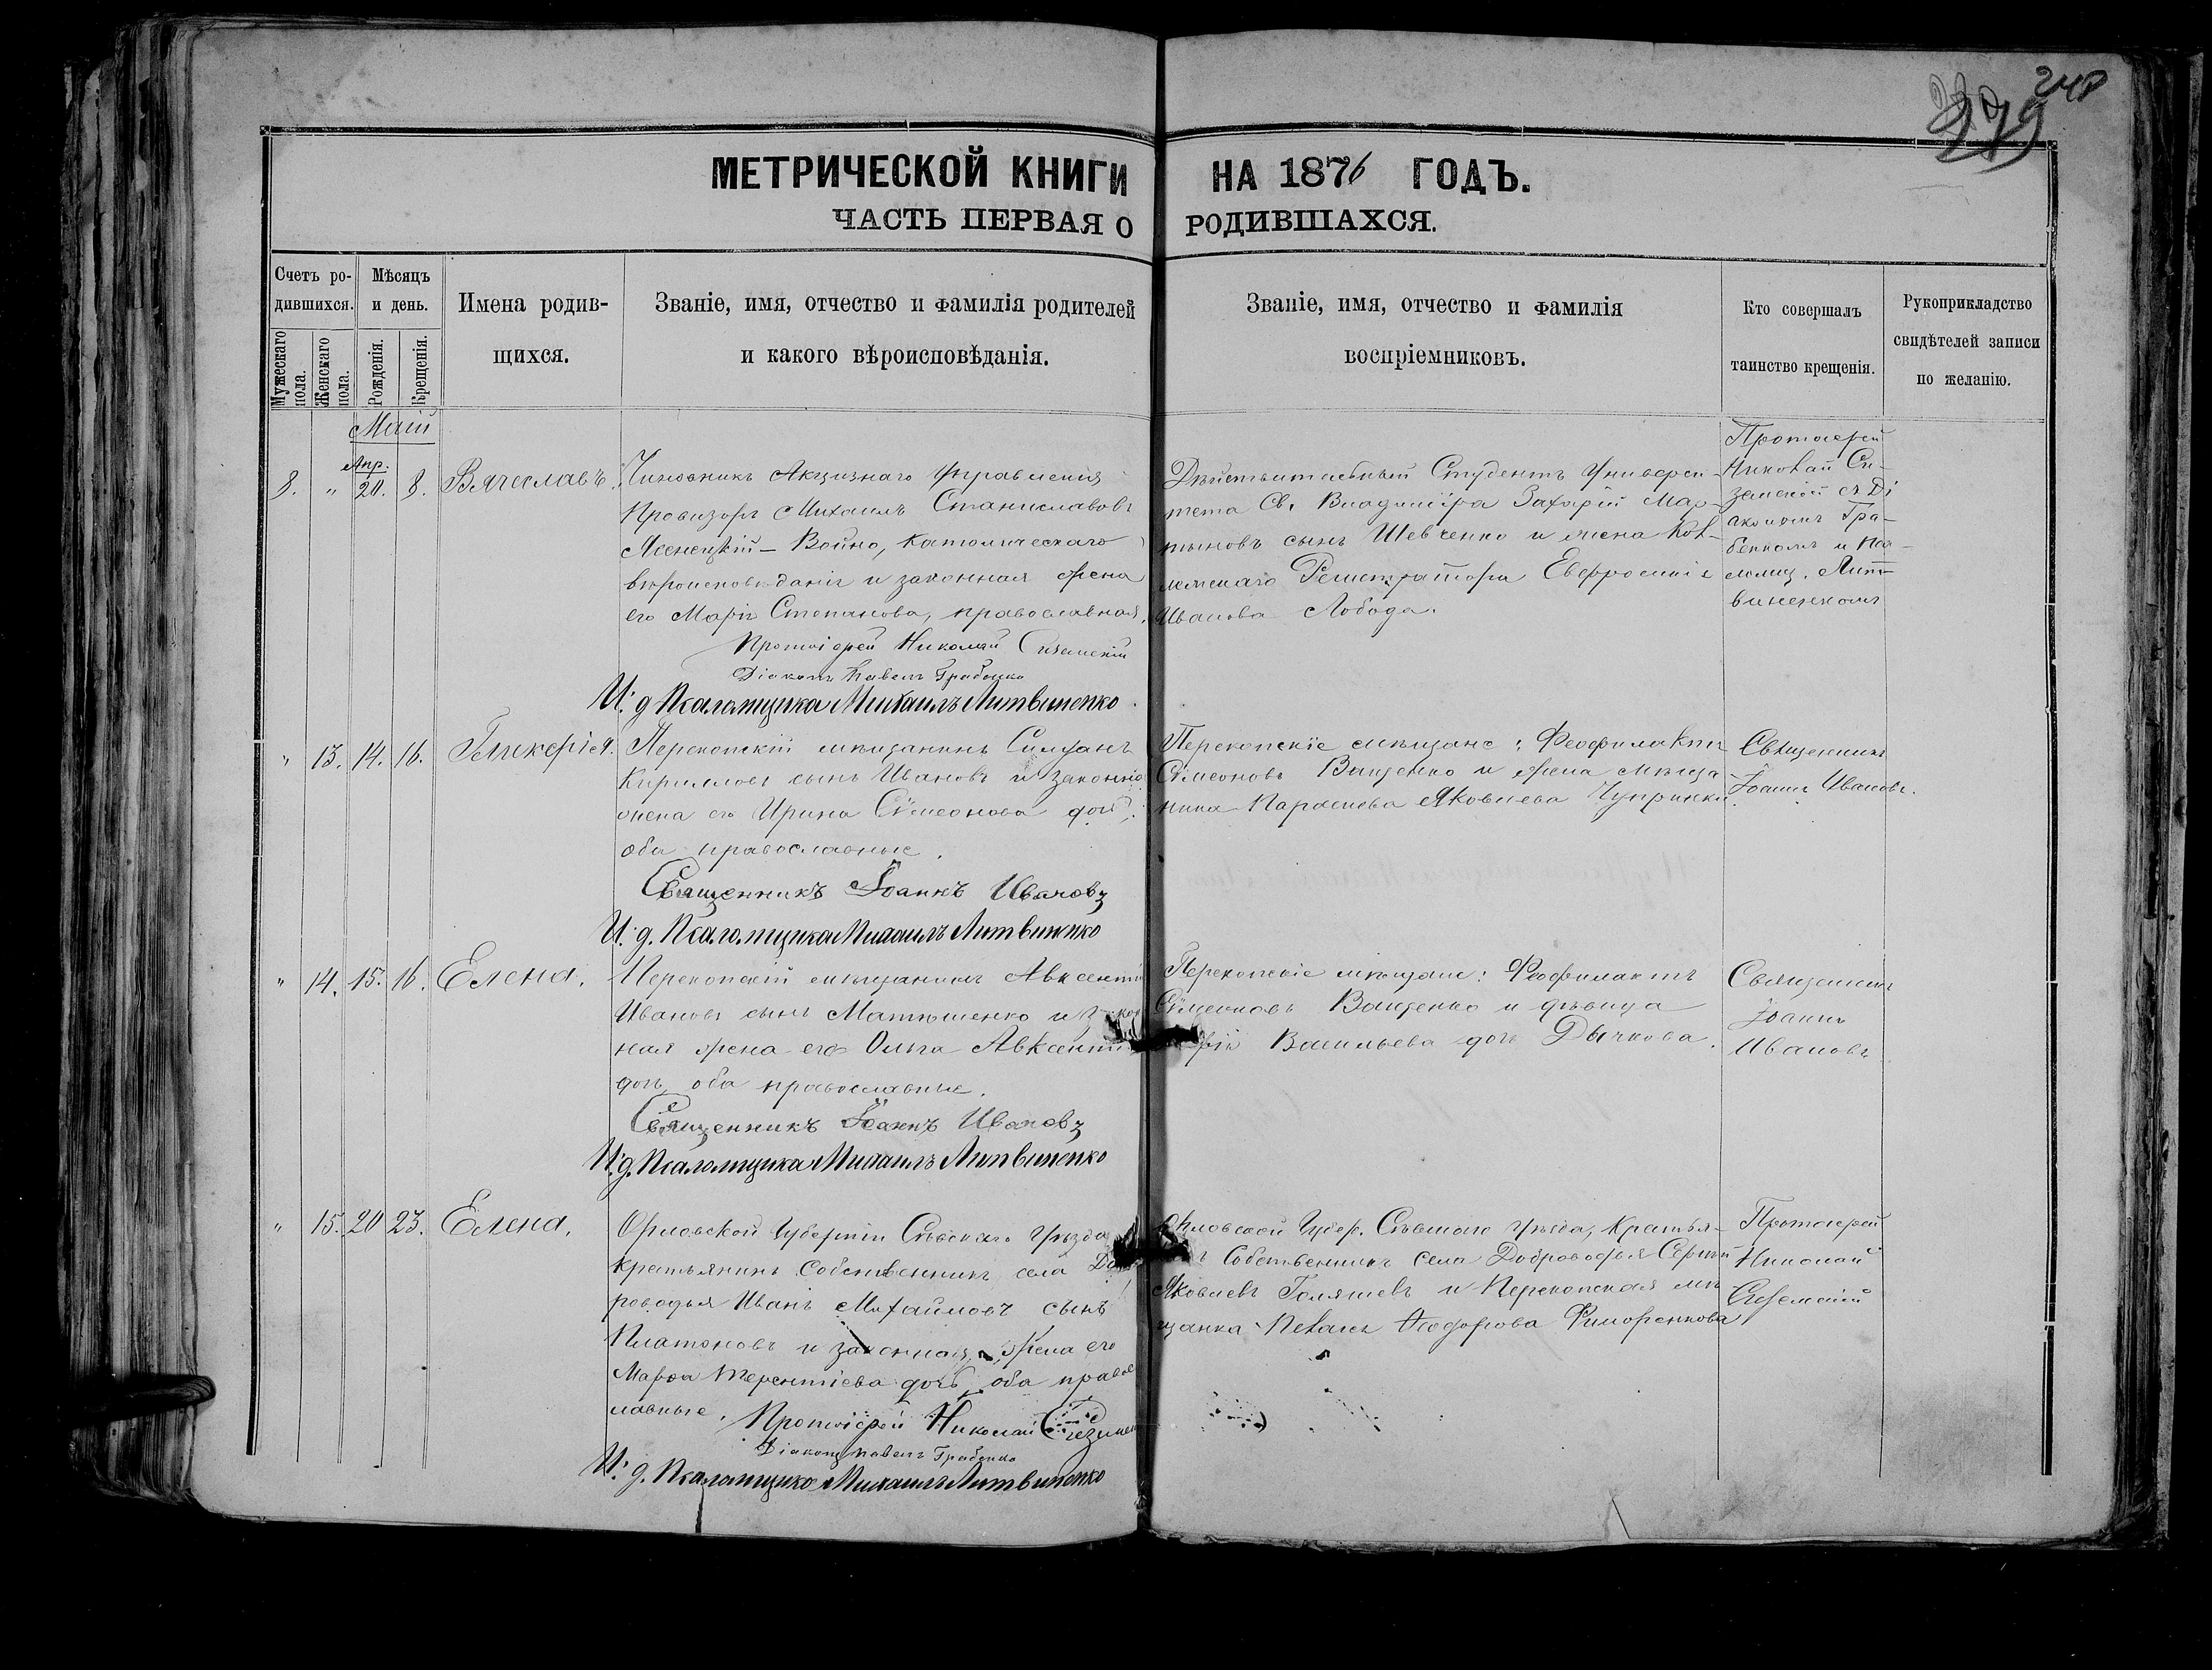 248
279
МЕТРИЧЕСКОЙ КНИГИ НА 1876 ГОДЪ.
ЧАСТЬ ПЕРВАЯ О РОДИВШАХСЯ.
Счетъ ро-
дившихся.
Мужескаго пола.
Женскаго пола.
Мѣсяцъ
и день.
Рожденія.
Крещенія.
Имена родив-
шихся.
Званіе, имя, отчество и фамилія родителей
и какого вѣроисповѣданія.
Званіе, имя, отчество и фамилія
воспріемниковъ.
Кто совершалъ
таинство крещенія.
Рукоприкладство
свидѣтелей записи
по желанію.
Май
8. " Апр. 20. 8. Вячеславъ.
Чиновникъ Акцизнаго Управленія
Провизоръ Михаилъ Станиславовъ
Ясенецкій-Войно, католическаго
вѣроисповѣданія и законная жена
его Марія Степанова, православная.
Протоіерей Николай
Діаконъ Павелъ Грабенко
И. д. Псаломщика Михаилъ Литвиненко
Дѣйствительный Студентъ Универси-
тета Св. Владиміра Захарій Мар-
тыновъ сынъ Шевченко и жена Кол-
лежскаго Регистратора Евфросинія
Иванова Лобода.
Протоіерей
Николай Си-
земскій съ Ді
акономъ Гра-
бенкомъ и Пса-
ломщ. Лит-
виненкомъ
" 13. 14. 16. Гликерія.
Перекопскій мѣщанинъ Симеонъ
Кирилловъ сынъ Ивановъ и законная
жена его Ирина Сѵмеонова дочь,
оба православные.
Священникъ Іоаннъ Ивановъ
И. д. Псаломщика Михаилъ Литвиненко
Перекопскіе мѣщане: Феофилактъ
Сѵмеоновъ Ващенко и жена мѣща-
нина Параскева Яковлева Чупринки.
Священникъ
Іоаннъ Ивановъ.
" 14. 15. 16. Елена.
Перекопскій мѣщанинъ Авксентій
Ивановъ сынъ Матюшенко и
ная жена его Ольга
дочь, оба православные.
Священникъ Іоаннъ Ивановъ
И. д. Псаломщика Михаилъ Литвиненко
Перекопскіе мѣщане: Феофилактъ
Сѵмеоновъ Ващенко и дѣвица
Васильева дочь Дычкова.
Священникъ
Іоаннъ
Ивановъ
" 15. 20 23. Елена.
Орловской Губерніи Сѣвскаго Уѣзда
крестьянинъ Собственникъ села
роводья Иванъ Михайловъ сынъ
Платоновъ и законная жена его
Марѳа Терентіева дочь, оба право
славные.
Протоіерей Николай
Діаконъ Павелъ Грабенко
И. д. Псаломщика Михаилъ Литвиненко
Орловской Губер. Сѣвскаго Уѣзда, Крестья-
Собственникъ села Доброводья Сергѣй
Яковлевъ Голяшевъ и Перекопская мѣ
щанка Ѳеодорова
Протоіерей
Николай
Сиземскій